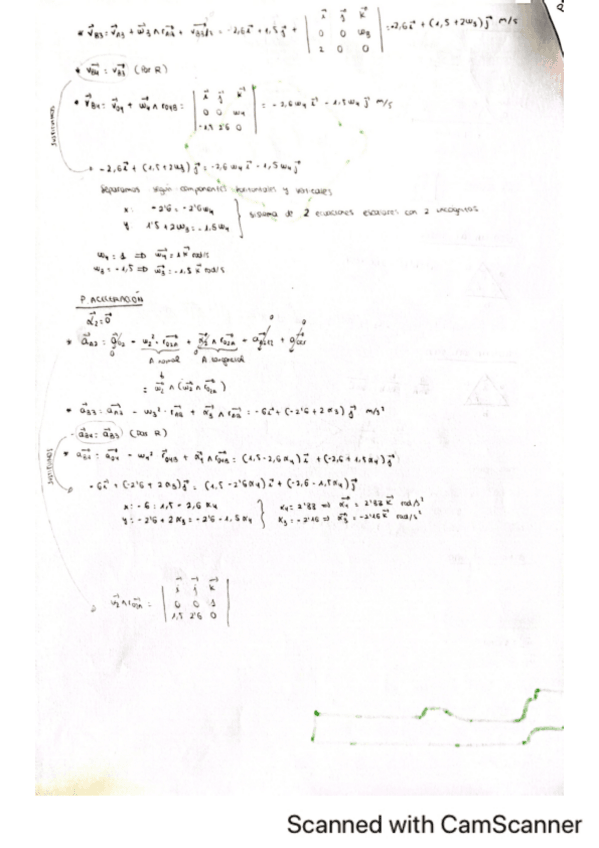 * v⃗B3 = v⃗A3 + ω⃗3 ∧ r⃗AB + v⃗B3/3 = -2,6i⃗ + 1,5j⃗ + | i⃗ j⃗ k⃗ ; 0 0 ω3 ; 2 0 0 | = -2,6i⃗ + (1,5 + 2ω3) j⃗ m/s
* v⃗B4 = v⃗B3 (Por R)
* v⃗B4 = v⃗O4 + ω⃗4 ∧ rO4B = | i⃗ j⃗ k⃗ ; 0 0 ω4 ; -1,5 2'6 0 | = -2,6ω4 i⃗ - 1,5ω4 j⃗ m/s
Sustituimos
-2,6i⃗ + (1,5+2ω3) j⃗ = -2,6ω4 i⃗ - 1,5ω4 j⃗
Separamos según componentes horizontales y verticales
x: -2'6 = -2'6ω4
y: 1'5 + 2ω3 = -1.5ω4 } sistema de 2 ecuaciones escalares con 2 incógnitas
ω4 = 1 ⇒ ω⃗4 = 1k⃗ rad/s
ω3 = -1,5 ⇒ ω⃗3 = -1.5 k⃗ rad/s
P. ACELERACIÓN
α⃗2 = 0⃗
A normal A tangencial
= ω⃗2 ∧ (ω⃗2 ∧ r⃗O2A)
* a⃗B3 = a⃗A3 - ω3² · r⃗AB + α⃗3 ∧ r⃗AB = -6i⃗ + (-2'6 + 2α3) j⃗ m/s²
- a⃗B4 = a⃗B3 (Por R)
* a⃗B4 = a⃗O4 - ω4² r⃗O4B + α⃗4 ∧ r⃗O4B = (1,5 - 2,6α4) i⃗ + (-2,6 - 1,5α4) j⃗
Sustituimos
-6i⃗ + (-2'6 + 2α3) j⃗ = (1,5 - 2'6α4) i⃗ + (-2,6 - 1,5α4) j⃗
x: -6 = 1,5 - 2,6α4
y: -2'6 + 2α3 = -2'6 - 1,5α4
α4 = 2'88 ⇒ α⃗4 = 2'88 k⃗ rad/s²
α3 = -2'16 ⇒ α⃗3 = -2'16 k⃗ rad/s²
ω⃗2 ∧ r⃗O2A = | i⃗ j⃗ k⃗ ; 0 0 1 ; 1,5 2'6 0 |
Scanned with CamScanner